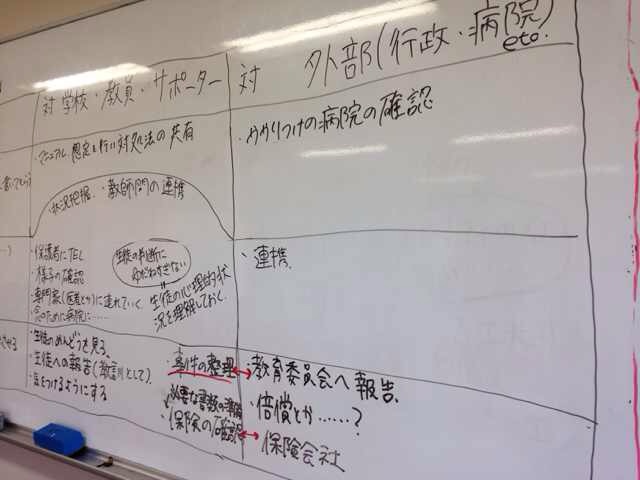 対 学校・教員・サポーター
対 外部(行政・病院)
etc.
・マニュアル、想定を行い対処法の共有
・かかりつけの病院の確認
・状況把握 ・教師間の連携
・保護者にTEL
・様子の確認
・専門家(医者とか)に連れていく
・念のために病院に……
生徒の判断に
ゆだねすぎない
生徒の心理的状
況を理解しておく
・連携
・生徒のめんどうを見る。
・生徒への報告(教訓として)
・気をつけるようにする
・事件の整理 ↔ 教育委員会へ報告
・必要な書類の準備
保険の確認 ↔ 保険会社
・倍償とか……?